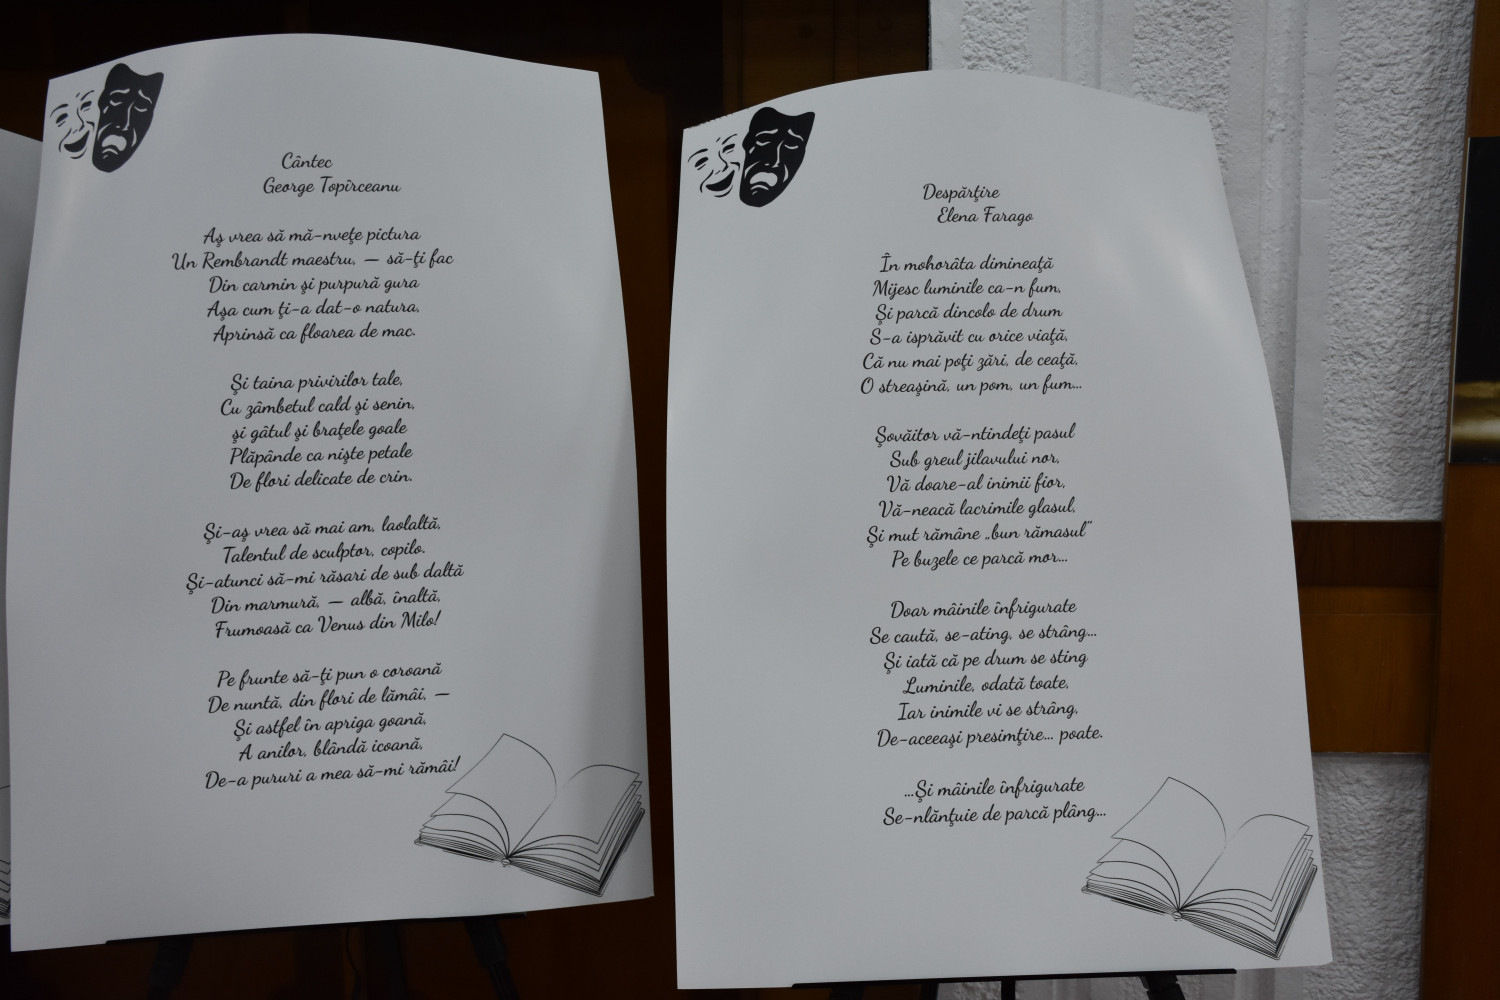 Cântec
George Topîrceanu
Aş vrea să mă-nveţe pictura
Un Rembrandt maestru, — să-ţi fac
Din carmin şi purpură gura
Aşa cum ţi-a dat-o natura,
Aprinsă ca floarea de mac.
Şi taina privirilor tale,
Cu zâmbetul cald şi senin,
şi gâtul şi braţele goale
Plăpânde ca nişte petale
De flori delicate de crin.
Şi-aş vrea să mai am, laolaltă,
Talentul de sculptor, copilo.
Şi-atunci să-mi răsari de sub daltă
Din marmură, — albă, înaltă,
Frumoasă ca Venus din Milo!
Pe frunte să-ţi pun o coroană
De nuntă, din flori de lămâi, —
Şi astfel în apriga goană,
A anilor, blândă icoană,
De-a pururi a mea să-mi rămâi!
Despărţire
Elena Farago
În mohorâta dimineaţă
Mijesc luminile ca-n fum,
Şi parcă dincolo de drum
S-a isprăvit cu orice viaţă,
Că nu mai poţi zări, de ceaţă,
O streaşină, un pom, un fum...
Şovăitor vă-ntindeţi pasul
Sub greul jilavului nor,
Vă doare-al inimii fior,
Vă-neacă lacrimile glasul,
Şi mut rămâne „bun rămasul”
Pe buzele ce parcă mor...
Doar mâinile înfrigurate
Se caută, se-ating, se strâng...
Şi iată că pe drum se sting
Luminile, odată toate,
Iar inimile vi se strâng,
De-aceeaşi presimţire... poate.
...Şi mâinile înfrigurate
Se-nlănţuie de parcă plâng...